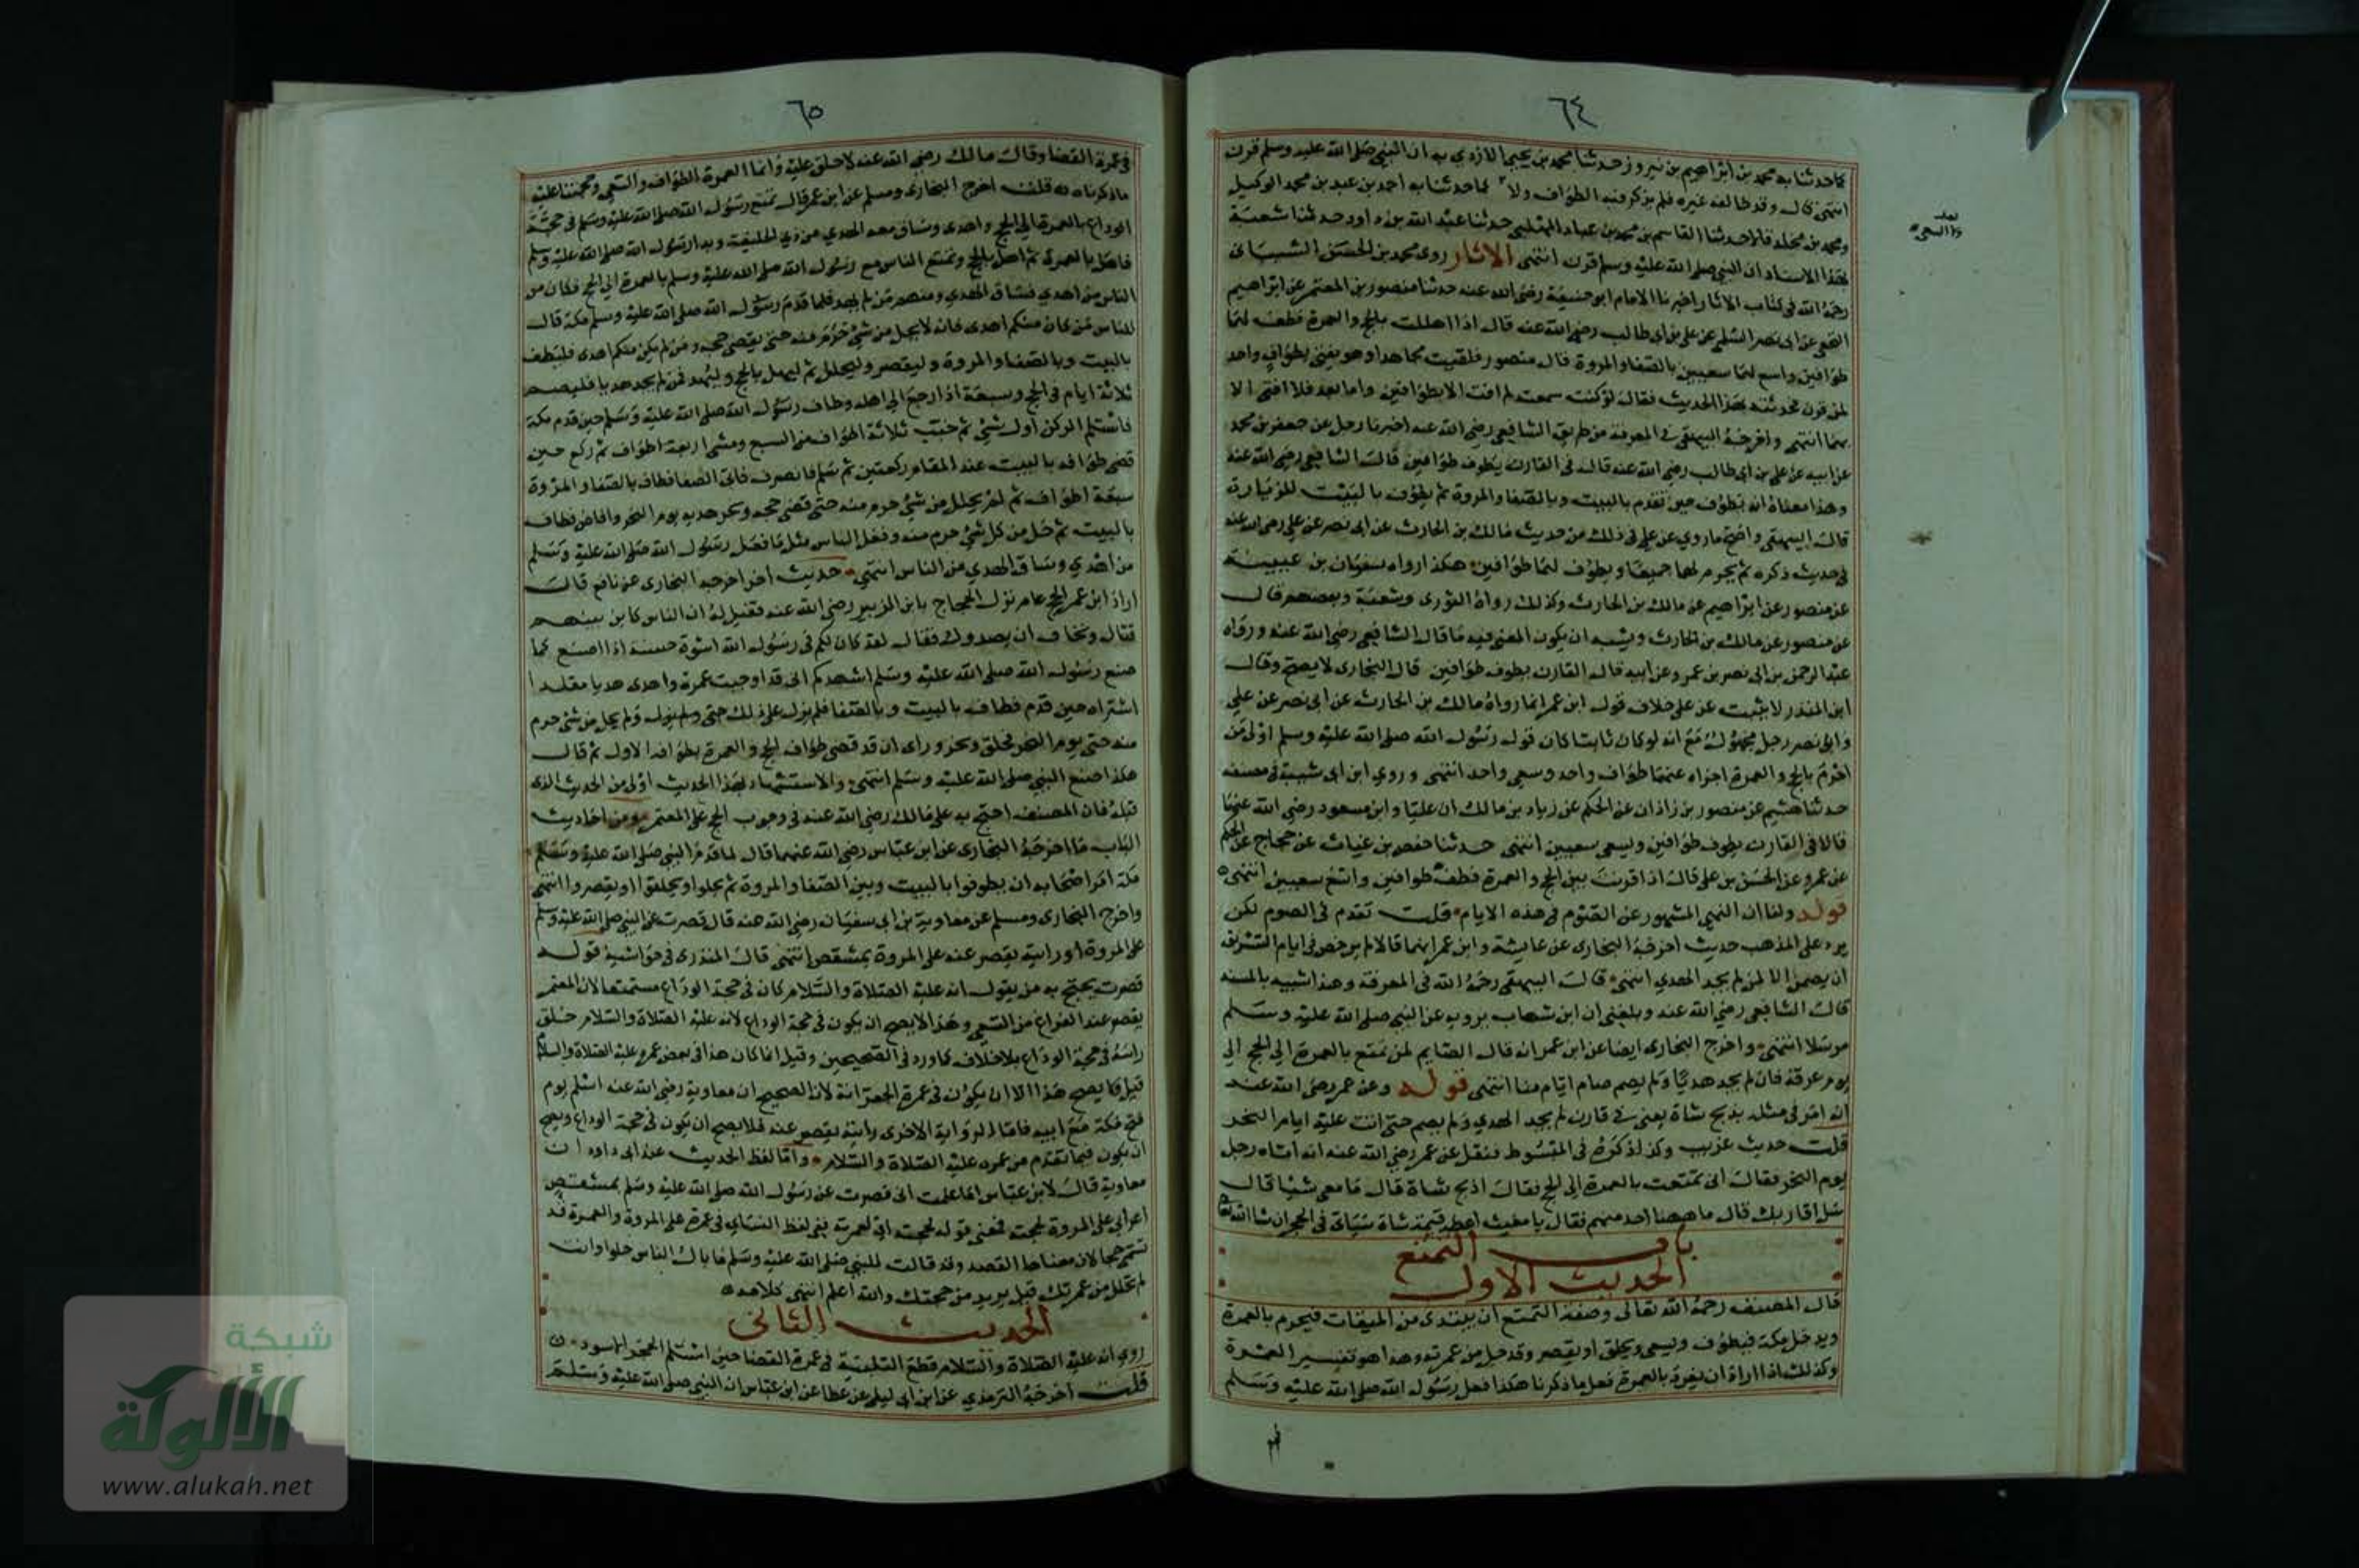 ٦٤
كما حدثنا به محمد بن ابراهيم بن نيروز حدثنا محمد بن يحيى الازدي به ان النبي صلى الله عليه وسلم قرن
انتهى قال وقد خالفه غيره فلم يذكر فيه الطواف ولا كما حدثنا به احمد بن عبد بن محمد الوكيل
ومحمد بن مخلد قالا حدثنا القاسم بن محمد بن عباد المهلبي حدثنا عبد الله بن داود حدثنا شعبة
بهذا الاسناد ان النبي صلى الله عليه وسلم قرن انتهى الاثار روى محمد بن الحسن الشيباني
رحمه الله في كتاب الاثار اخبرنا الامام ابو حنيفة رضي الله عنه حدثنا منصور بن المعتمر عن ابراهيم
النخعي عن ابي نصر السلمي عن علي بن ابي طالب رضي الله عنه قال اذا اهللت بالحج والعمرة فطف لهما
طوافين واسع لهما سعيين بالصفا والمروة قال منصور فلقيت مجاهدا وهو يفتي بطواف واحد
لمن قرن فحدثته بهذا الحديث فقال لو كنت سمعت لم افت الا بطوافين واما بعد فلا افتي الا
بهما انتهى واخرجه البيهقي في المعرفة من طريق الشافعي رضي الله عنه اخبرنا رجل عن جعفر بن محمد
عن ابيه عن علي بن ابي طالب رضي الله عنه قال في القارن يطوف طوافين قال الشافعي رضي الله عنه
وهذا معناه انه يطوف حين تقدم بالبيت وبالصفا والمروة ثم يطوف بالبيت للزيارة
قال البيهقي واصح ما روي عن علي في ذلك من حديث مالك بن الحارث عن ابي نصر عن علي رضي الله عنه
في حديث ذكره ثم يحرم لهما جميعا ويطوف لهما طوافين هكذا رواه سفيان بن عيينة
عن منصور عن ابراهيم عن مالك بن الحارث وكذلك رواه الثوري وشعبة وبعضهم قال
عن منصور عن مالك بن الحارث ويشبه ان يكون المعنى فيه ما قال الشافعي رضي الله عنه ورواه
عبد الرحمن بن ابي نصر بن عمرو عن ابيه قال القارن يطوف طوافين قال البخاري لا يصح وقال
ابن المنذر لا يثبت عن علي خلاف قول ابن عمر انما رواه مالك بن الحارث عن ابي نصر عن علي
وابي نصر رجل مجهول مع انه لو كان ثابتا كان قول رسول الله صلى الله عليه وسلم اولى من
احرم بالحج والعمرة اجزاه عنهما طواف واحد وسعي واحد انتهى وروى ابن ابي شيبة في مصنفه
حدثنا هشيم عن منصور بن زاذان عن الحكم عن زياد بن مالك ان عليا وابن مسعود رضي الله عنهما
قالا في القارن يطوف طوافين ويسعى سعيين انتهى حدثنا حفص بن غياث عن حجاج عن الحكم
عن عمرو عن الحسن بن علي قال اذا قرنت بين الحج والعمرة فطف طوافين واسع سعيين انتهى
قوله ولنا ان النهي المشهور عن الصوم في هذه الايام قلت تقدم في الصوم لكن
يرد على المذهب حديث اخرجه البخاري عن عايشة وابن عمر انهما قالا لم يرخص في ايام التشريق
ان يصمن الا لمن لم يجد الهدي انتهى قال البيهقي رحمه الله في المعرفة وهذا شبيه بالمسند
قال الشافعي رضي الله عنه وبلغني ان ابن شهاب يرويه عن النبي صلى الله عليه وسلم
مرسلا انتهى واخرج البخاري ايضا عن ابن عمر انه قال الصايم لمن تمتع بالعمرة الى الحج الى
يوم عرفة فان لم يجد هديا ولم يصم صام ايام منا انتهى قوله وعن عمر رضي الله عنه
انه امر في مثله بذبح شاة يعني في قارن لم يجد الهدي ولم يصم حتى اتت عليه ايام النحر
قلت حديث غريب وكذا ذكره في المبسوط فنقل عن عمر رضي الله عنه انه اتاه رجل
يوم النحر فقال اني تمتعت بالعمرة الى الحج فقال اذبح شاة قال ما معي شيا قال
سل اقاربك قال ما ههنا احد منهم فقال يا مغيث اعطه قيمة شاة سياتي في الحج ان شا الله تعالى
باب التمتع
الحديث الاول
قال المصنف رحمه الله تعالى وصفة التمتع ان يبتدي من الميقات فيحرم بالعمرة
ويدخل مكة فيطوف ويسعى ويحلق او يقصر وقد حل من عمرته وهذا هو تفسير العمرة
وكذلك اذا اراد ان يفرد بالعمرة فعل ما ذكرنا هكذا فعل رسول الله صلى الله عليه وسلم
في
٦٥
في عمرة القضا وقال مالك رضي الله عنه لا حلق عليه وانما العمرة الطواف والسعي وحجتنا عليه
ما ذكرناه قلت اخرج البخاري ومسلم عن ابن عمر قال تمتع رسول الله صلى الله عليه وسلم في حجة
الوداع بالعمرة الى الحج واهدى وساق معه الهدي من ذي الحليفة وبدا رسول الله صلى الله عليه وسلم
فاهل بالعمرة ثم اهل بالحج وتمتع الناس مع رسول الله صلى الله عليه وسلم بالعمرة الى الحج فكان من
الناس من اهدى فساق الهدي ومنهم من لم يهد فلما قدم رسول الله صلى الله عليه وسلم مكة قال
للناس من كان منكم اهدى فانه لا يحل من شي حرم منه حتى يقضي حجه ومن لم يكن منكم اهدى فليطف
بالبيت وبالصفا والمروة وليقصر وليحلل ثم ليهل بالحج وليهد فمن لم يجد هديا فليصم
ثلاثة ايام في الحج وسبعة اذا رجع الى اهله وطاف رسول الله صلى الله عليه وسلم حين قدم مكة
فاستلم الركن اول شي ثم خب ثلاثة اطواف من السبع ومشى اربعة اطواف ثم ركع حين
قضى طوافه بالبيت عند المقام ركعتين ثم سلم فانصرف فاتى الصفا فطاف بالصفا والمروة
سبعة اطواف ثم لم يحلل من شي حرم منه حتى قضى حجه ونحر هديه يوم النحر وافاض فطاف
بالبيت ثم حل من كل شي حرم منه وفعل الناس مثل ما فعل رسول الله صلى الله عليه وسلم
من اهدى وساق الهدي من الناس انتهى حديث اخر اخرجه البخاري عن نافع قال
اراد ابن عمر الحج عام نزل الحجاج بابن الزبير رضي الله عنه فقيل له ان الناس كاين بينهم
قتال ونخاف ان يصدوك فقال لقد كان لكم في رسول الله اسوة حسنة اذا اصنع كما
صنع رسول الله صلى الله عليه وسلم اشهدكم اني قد اوجبت عمرة واهدى هديا مقلدا
اشتراه حين قدم فطاف بالبيت وبالصفا فلم يزل على ذلك حتى ولم يزل ولم يحل من شي حرم
منه حتى يوم النحر فحلق ونحر وراى ان قد قضى طواف الحج والعمرة بطوافه الاول ثم قال
هكذا صنع النبي صلى الله عليه وسلم انتهى والاستشهاد بهذا الحديث اولى من الحديث الذي
قبله فان المصنف احتج به على مالك رضي الله عنه في وجوب الحج على المعتمر ومن احاديث
الباب ما اخرجه البخاري عن ابن عباس رضي الله عنهما قال لما قدم النبي صلى الله عليه وسلم
مكة امر اصحابه ان يطوفوا بالبيت وبين الصفا والمروة ثم يحلوا ويحلقوا او يقصروا انتهى
واخرج البخاري ومسلم عن معاوية بن ابي سفيان رضي الله عنه قال قصرت عن النبي صلى الله عليه وسلم
على المروة او رايته يقصر عنه على المروة بمشقص انتهى قال المنذري في حواشيه قوله
قصرت يحتج به من يقول انه عليه الصلاة والسلام كان في حجة الوداع متمتعا لان المعتمر
يقصر عند الفراغ من السعي وهذا لا يصح ان يكون في حجة الوداع لانه عليه الصلاة والسلام حلق
راسه في حجة الوداع بلا خلاف كما ورد في الصحيحين وقيل انما كان هذا في بعض عمره عليه الصلاة والسلام
قيل فما يصح هذا الا ان يكون في عمرة الجعرانة لان الصحيح ان معاوية رضي الله عنه اسلم يوم
فتح مكة مع ابيه فاما الرواية الاخرى رايته يقصر عنه فلا يصح ان يكون في حجة الوداع ويصح
ان يكون فيما تقدم من عمره عليه الصلاة والسلام واما لفظ الحديث عند ابي داود ان
معاوية قال لابن عباس اما علمت اني قصرت عن رسول الله صلى الله عليه وسلم بمشقص
اعرابي على المروة لحجته فمعنى قوله لحجته اي لعمرته في لفظ النساي في عمرة على المروة والعمرة قد
تسمى حجا لان معناها القصد وقد قالت للنبي صلى الله عليه وسلم ما بال الناس حلوا وانت
لم تحلل من عمرتك قيل يريد من حجتك والله اعلم انتهى كلامه
الحديث الثاني
روي انه عليه الصلاة والسلام قطع التلبية في عمرة القضا حين استلم الحجر الاسود
قلت اخرجه الترمذي عن ابن ابي ليلى عن عطا عن ابن عباس ان النبي صلى الله عليه وسلم
شبكة
الألوكة
www.alukah.net